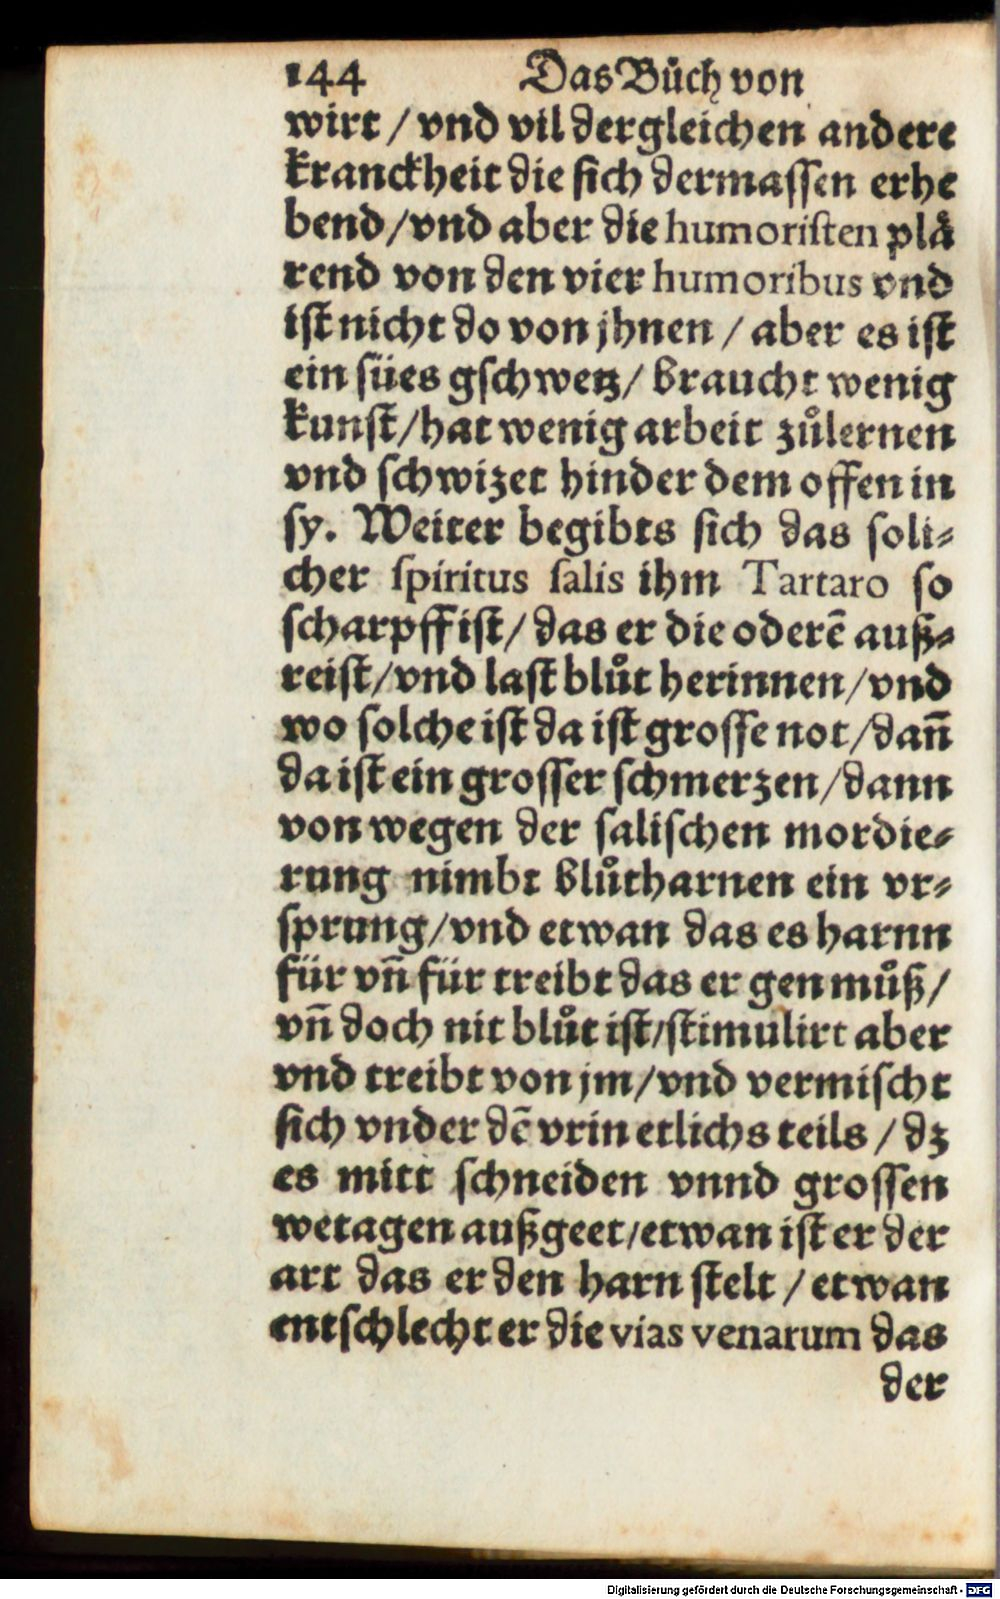 144 Das Bůch von
wirt / vnd vil dergleichen andere
kranckheit die sich dermassen erhe
bend/vnd aber die humoristen plå
rend von den vier humoribus vnd
ist nicht do von jhnen / aber es ist
ein sües gschwetz/ braucht wenig
kunst/hat wenig arbeit zůlernen
vnd schwizet hinder dem offen in
sy. Weiter begibts sich das soli⸗
cher spiritus salis ihm Tartaro so
scharpff ist/ das er die oderē auß⸗
reist/vnd last blůt herinnen/vnd
wo solche ist da ist grosse not/dañ
da ist ein grosser schmerzen/dann
von wegen der salischen mordie⸗
rung nimbt blůtharnen ein vr⸗
sprung/vnd etwan das es harnn
für vñ für treibt das er gen můß/
vñ doch nit blůt ist/stimulirt aber
vnd treibt von jm/vnd vermischt
sich vnder dē vrin etlichs teils / dz
es mitt schneiden vnnd grossen
wetagen außgeet/etwan ist er der
art das er den harn stelt / etwan
entschlecht er die vias venarum das
der
Digitalisierung gefördert durch die Deutsche Forschungsgemeinschaft - DFG